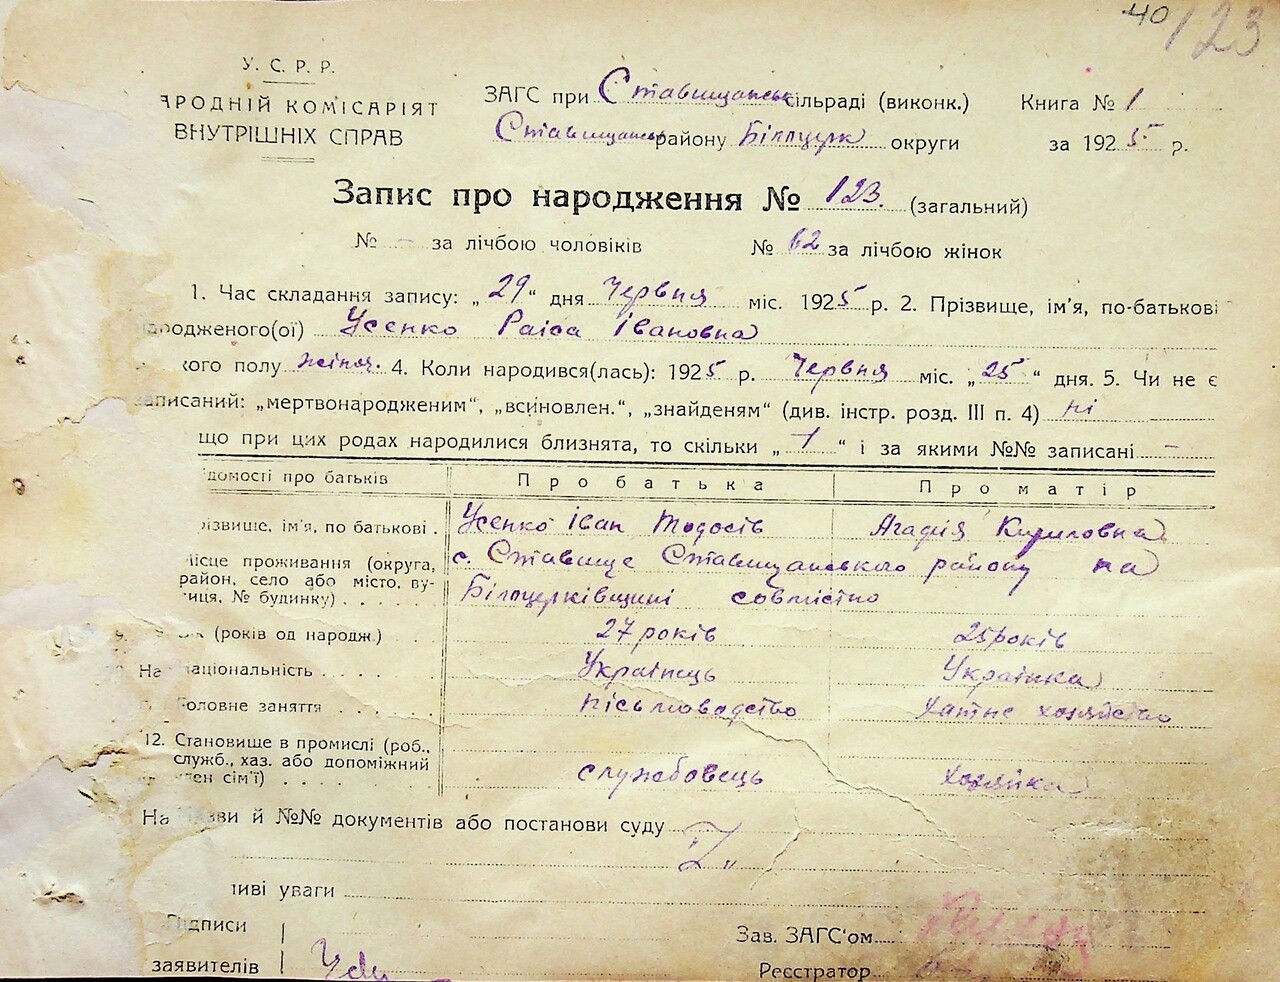 40 123
У. С. Р. Р.
АРОДНІЙ КОМІСАРІЯТ
ВНУТРІШНІХ СПРАВ
ЗАГС при Ставищанськ сільраді (виконк.) Книга № 1
Ставищанськ району Білоцерк округи за 1925 р.
Запис про народження № 123. (загальний)
№ - за лічбою чоловіків № 62 за лічбою жінок
1. Час складання запису: „29“ дня Червня міс. 1925 р. 2. Прізвище, ім'я, по-батькові
народженого(ої) Усенко Раіса Івановна
кого полу жіноч. 4. Коли народився(лась): 1925 р. Червня міс. „25“ дня. 5. Чи не є
записаний: „мертвонародженим“, „всиновлен.“, „знайденям“ (див. інстр. розд. III п. 4) ні
що при цих родах народилися близнята, то скільки „ “ і за якими №№ записані -
домості про батьків Про батька Про матір
різвище, ім'я, по батькові . Усенко Іван Тодосів Агафія Кириловна
Місце проживання (округа, район, село або місто, ву- с. Ставище Ставищанського району на
лиця, № будинку) . . . . . Білоцерківщині совмістно
9. (років од народж.) . . 27 років 25 років
На ціональність . . . . . Українець Українка
оловне заняття . . . . . пісьмоводство хатнє хозяйство
12. Становище в промислі (роб.,
служб., хаз. або допоміжний
лен сім'ї) . . . . службовець хозяйка
На зви й №№ документів або постанови суду
ливі уваги
Підписи Зав. ЗАГС'ом
заявителів Усе Реєстратор